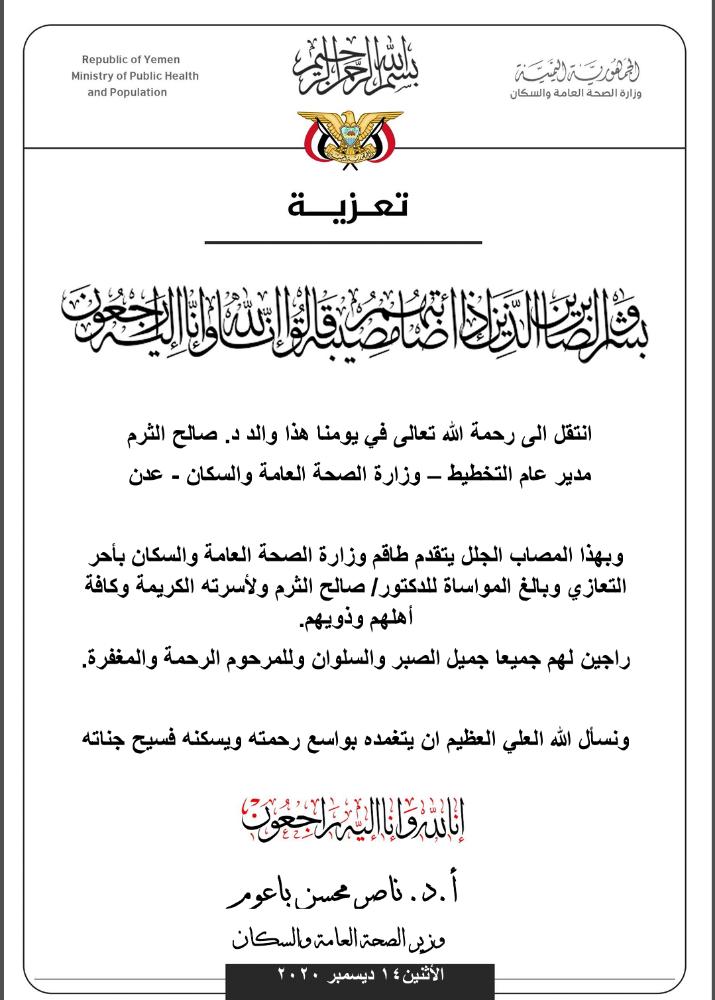 Republic of Yemen
Ministry of Public Health
and Population
بسم الله الرحمن الرحيم
الجمهورية اليمنية
وزارة الصحة العامة والسكان
تعزية
وبشر الصابرين الذين إذا أصابتهم مصيبة قالوا إنا لله وإنا إليه راجعون
انتقل الى رحمة الله تعالى في يومنا هذا والد د. صالح الثرم
مدير عام التخطيط – وزارة الصحة العامة والسكان - عدن
وبهذا المصاب الجلل يتقدم طاقم وزارة الصحة العامة والسكان بأحر
التعازي وبالغ المواساة للدكتور/ صالح الثرم ولأسرته الكريمة وكافة
أهلهم وذويهم.
راجين لهم جميعا جميل الصبر والسلوان وللمرحوم الرحمة والمغفرة.
ونسأل الله العلي العظيم ان يتغمده بواسع رحمته ويسكنه فسيح جناته
إنا لله وإنا إليه راجعون
أ.د. ناصر محسن باعوم
وزير الصحة العامة والسكان
الأثنين١٤ ديسمبر ٢٠٢٠